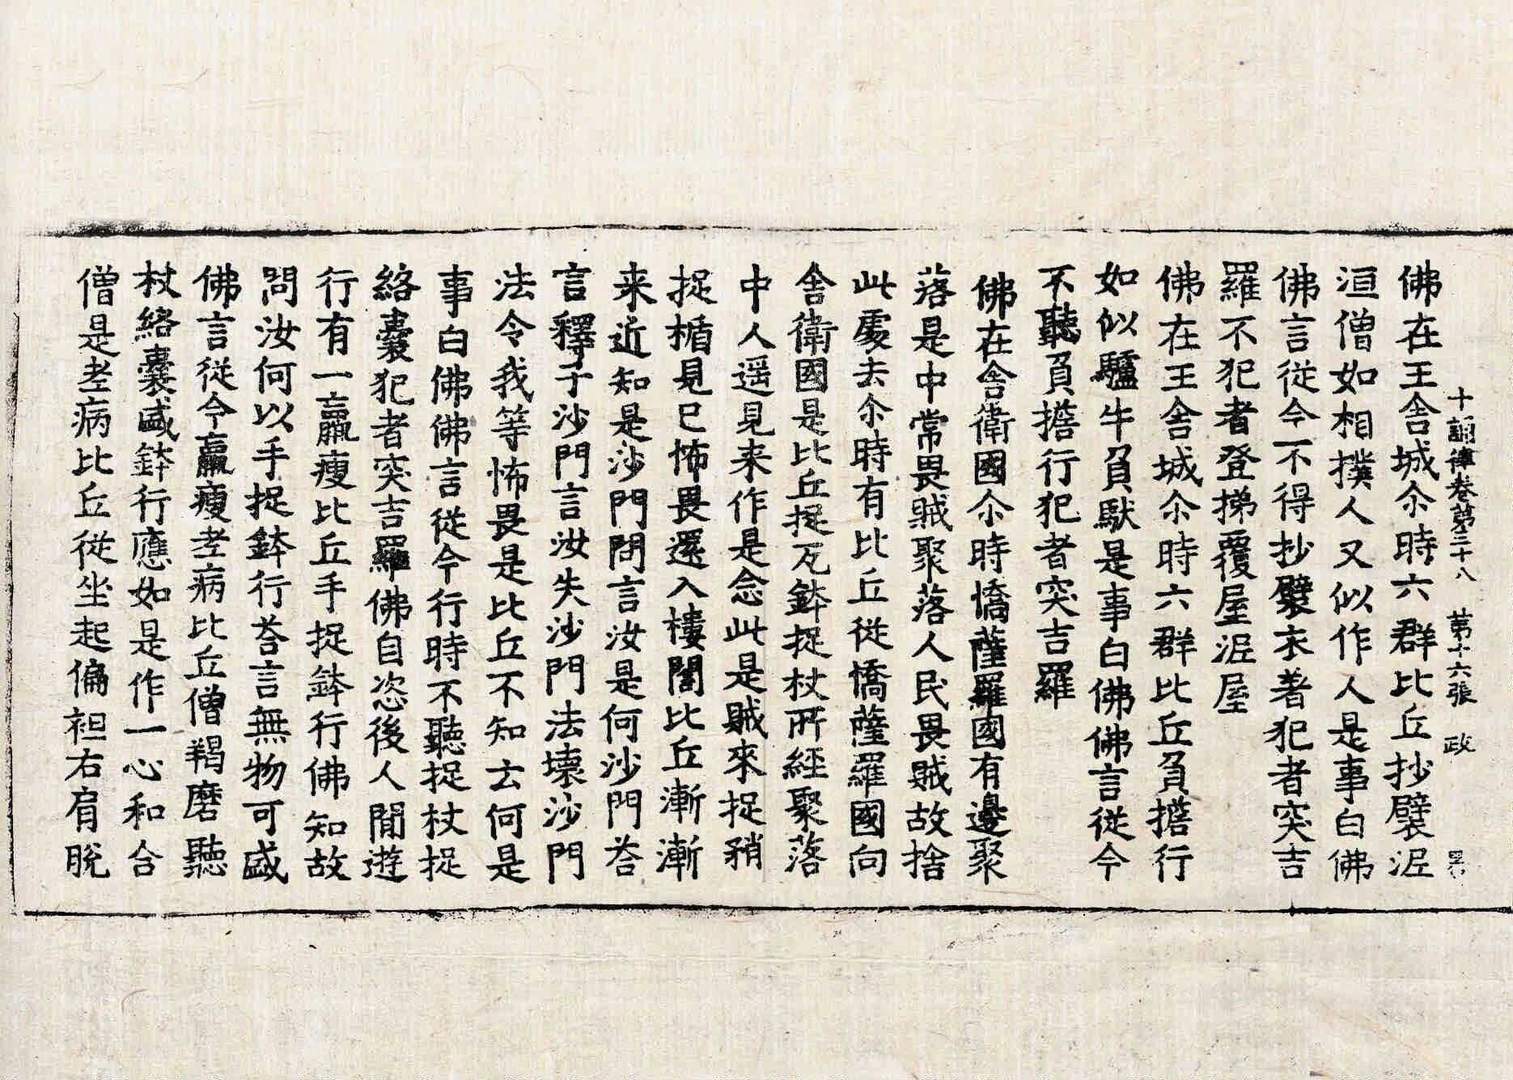 十誦律卷第三十八 第十六張 政
佛在王舍城尒時六群比丘抄襞泥
洹僧如相撲人又似作人是事白佛
佛言從今不得抄襞衣著犯者突吉
羅不犯者登梯覆屋泥屋
佛在王舍城尒時六群比丘負擔行
如似驢牛負馱是事白佛佛言從今
不聽負擔行犯者突吉羅
佛在舍衛國尒時憍薩羅國有邊聚
落是中常畏賊聚落人民畏賊故捨
此處去尒時有比丘從憍薩羅國向
舍衛國是比丘捉瓦鉢捉杖所經聚落
中人遥見来作是念此是賊來捉矟
捉楯見已怖畏還入樓閣比丘漸漸
来近知是沙門問言汝是何沙門荅
言釋子沙門言汝失沙門法壞沙門
法令我等怖畏是比丘不知云何是
事白佛佛言從今行時不聽捉杖捉
絡囊犯者突吉羅佛自恣後人間遊
行有一羸瘦比丘手捉鉢行佛知故
問汝何以手捉鉢行荅言無物可盛
佛言從今羸瘦老病比丘僧羯磨聽
杖絡囊盛鉢行應如是作一心和合
僧是老病比丘從坐起偏袒右肩脫